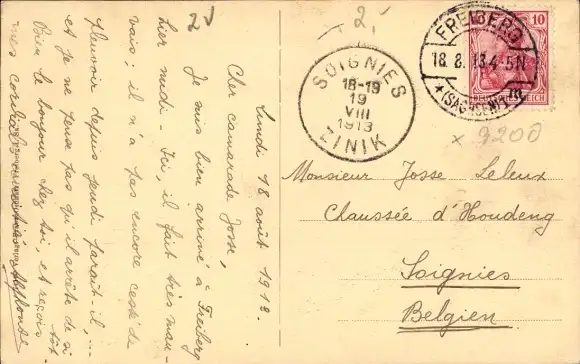 2
2
FREIBERG
18.8.13.4-5N
*(SACHSEN)1
10
DEUTSCHES REICH
SOIGNIES
18-19
19
VIII
1913
ZINIK
x 9200
Monsieur Josse Leleux
Chaussée d'Houdeng
Soignies
Belgien
Lundi 18 août 1913.
Cher camarade Josse,
Je suis bien arrivé à Freiberg
hier midi. Ici, il fait très mau-
vais; il n'a pas encore cessé de
pleuvoir depuis jeudi paraît-il,...
et je ne pense pas qu'il arrête de si
tôt.
Bien le bonjour chez toi, et reçois
mes cordiales